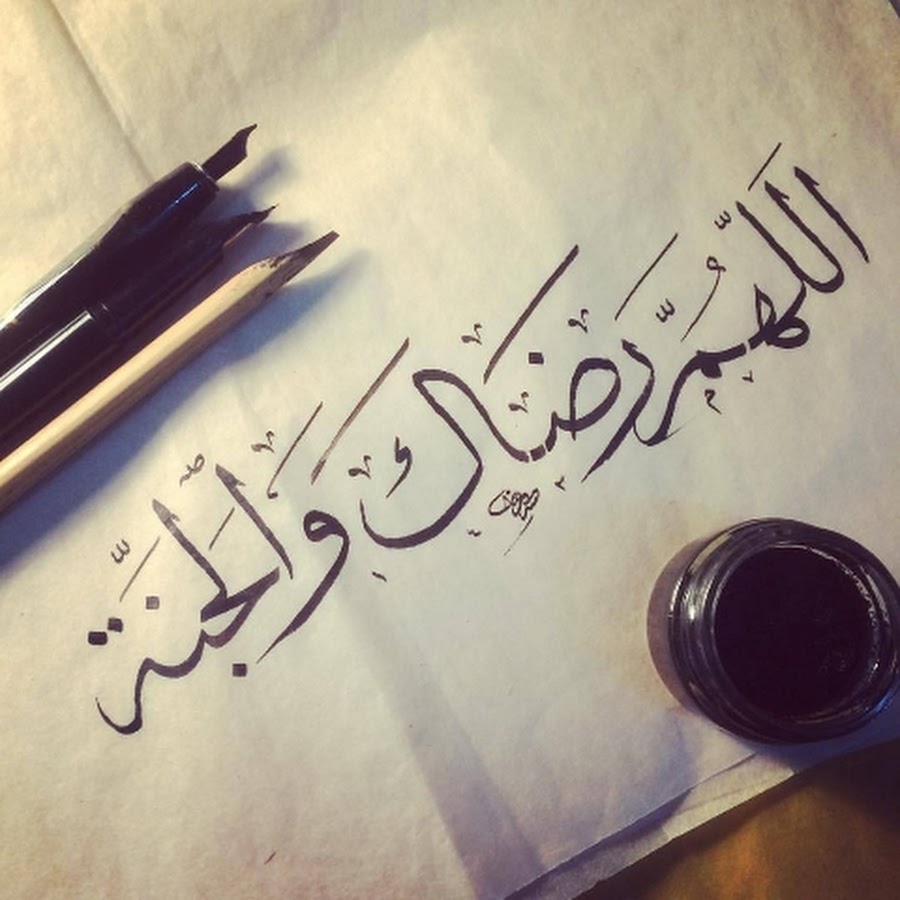 اَللّٰهُمَّ رِضَاكَ وَالْجَنَّةَ